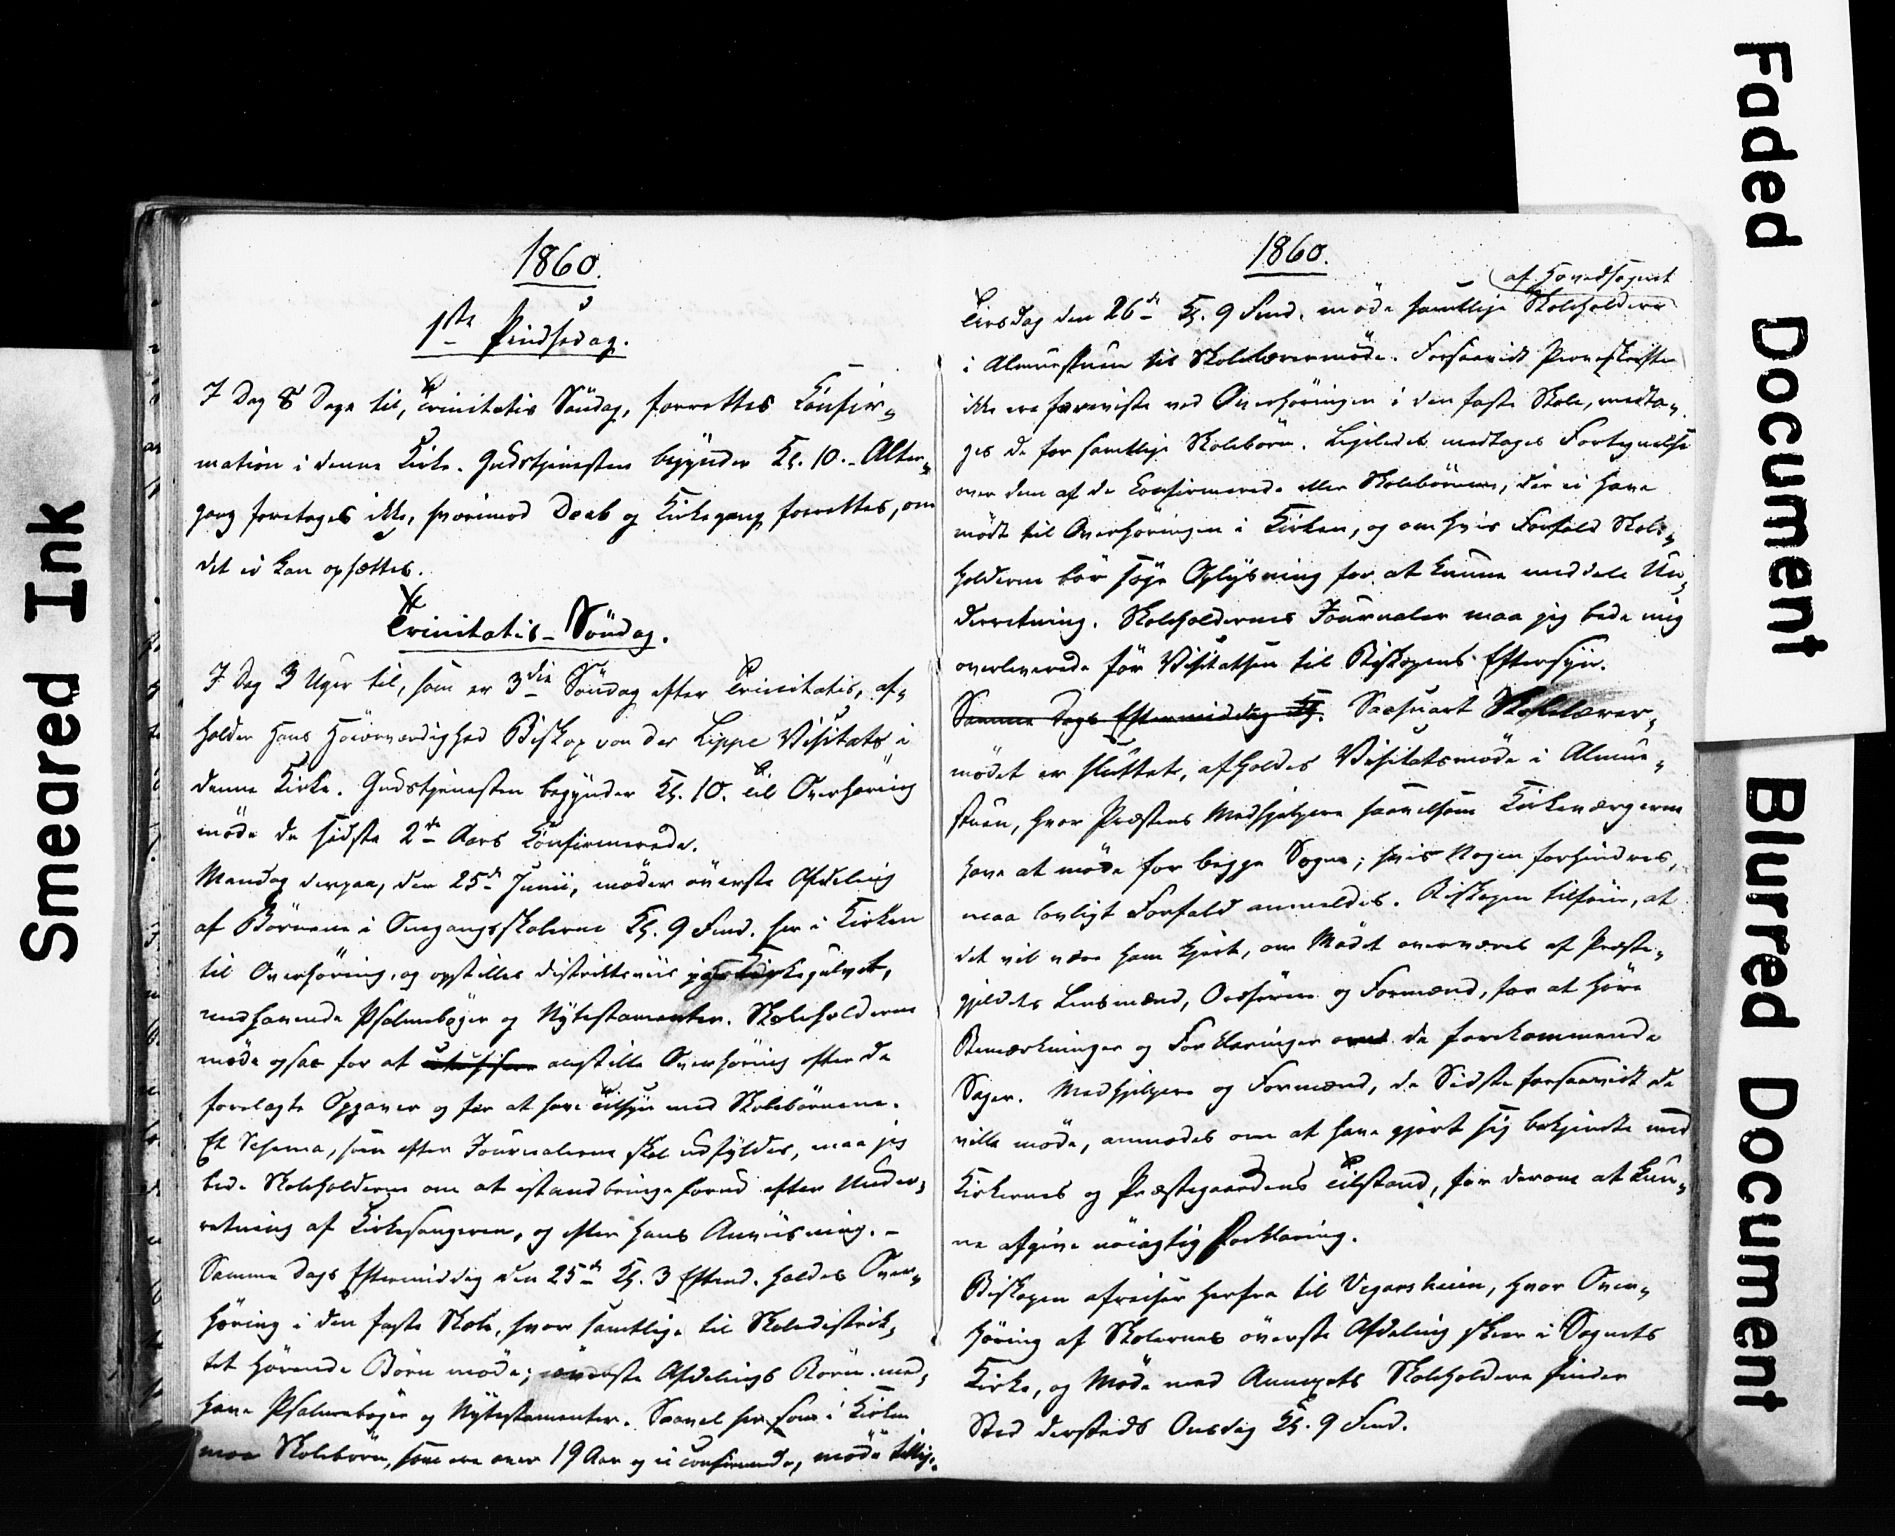 Smeared Ink
1860.
1ste Pindsedag.
I Dag 8 Dage til, Trinitatis Söndag, forrettes Confir-
mation i denne Kirke. Gudstjenesten begynder Kl. 10. Alter-
gang foretages ikke, hvorimod Daab og Kirkegang forrettes, om
det ei kan opsættes.
Trinitatis-Söndag.
I Dag 3 Uger til, som er 3die Söndag efter Trinitatis, af-
holder Hans Höiærværdighed Biskop von der Lippe Visitats i
denne Kirke. Gudstjenesten begynder Kl. 10. Til Overhöring
möde de sidste 2de Aars Confirmerede.
Mandag derpaa, den 25de Junii, möder överste Afdeling
af Börnene i Omgangsskolerne Kl. 9 Fmd. her i Kirken
til Overhöring, og opstilles distriktsviis paa Kirkegulvet,
medhavende Psalmebøger og Nytestamenter. Skoleholderne
möde ogsaa for at anstille Overhöring efter de
forelagte Opgaver og for at have Tilsyn med Skolebörnene.
Et Schema, som efter Journalerne skal udfyldes, maa jeg
bede Skoleholderne om at istandbringe forud efter Under-
retning af Kirkesangeren, og efter hans Anviisning. -
Samme Dags Eftermiddag den 25de Kl. 3 Efterm. holdes Over-
höring i den faste Skole, hvor samtlige til Skoledistrik-
tet hörende Börn möde; överste Afdelings Börn med-
have Psalmebøger og Nytestamenter. Saavel her som i Kirken
maa Skolebörn, som ere over 19 Aar og ei confirmerede, möde tillige.
1860.
af Hovedsognet
Tirsdag den 26de Kl. 9 Fmd. möde samtlige Skoleholdere
i Almuestuen til Skolelærermöde. Forsaavidt Prøveskrifter
ikke ere foreviste ved Overhöringen i den faste Skole, medta-
ges de for samtlige Skolebörn. Ligeledes medtages Fortegnelse
over dem af de Confirmerede eller Skolebörnene, der ei have
mödt til Overhöringen i Kirken, og om hvis Forfald Skole-
holderne bör söge Oplysning for at kunne meddele Un-
derretning. Skoleholdernes Journaler maa jeg bede mig
overleverede för Visitatsen til Biskopens Eftersyn.
Samme Dags Eftermiddag Kl. Saasnart Skolelærer-
mödet er sluttet, afholdes Visitatsmöde i Almue-
stuen, hvor Præstens Medhjelpere saavelsom Kirkeværgerne
have at möde for begge Sogne; hvis Nogen forhindres,
maa lovligt Forfald anmeldes. Biskopen tilföier, at
det vil være ham kjert, om Mödet overværes af Præste-
gjeldets Lensmænd, Ordförer og Formænd, for at höre
Bemærkninger og Forklaringer om de forekommende
Sager. Medhjelpere og Formænd, de Sidste forsaavidt de
ville möde, anmodes om at have gjort sig bekjendte med
Kirkernes og Præstegaardens Tilstand, for derom at kun-
ne afgive nöiagtig Forklaring.
Biskopen afreiser herfra til Vegarsheien, hvor Over-
höring af Skolernes överste Afdeling skeer i Sognets
Kirke, og Möde med Annexets Skoleholdere finder
Sted dersteds Onsdag Kl. 9 Fmd.
Faded Document
Blurred Document